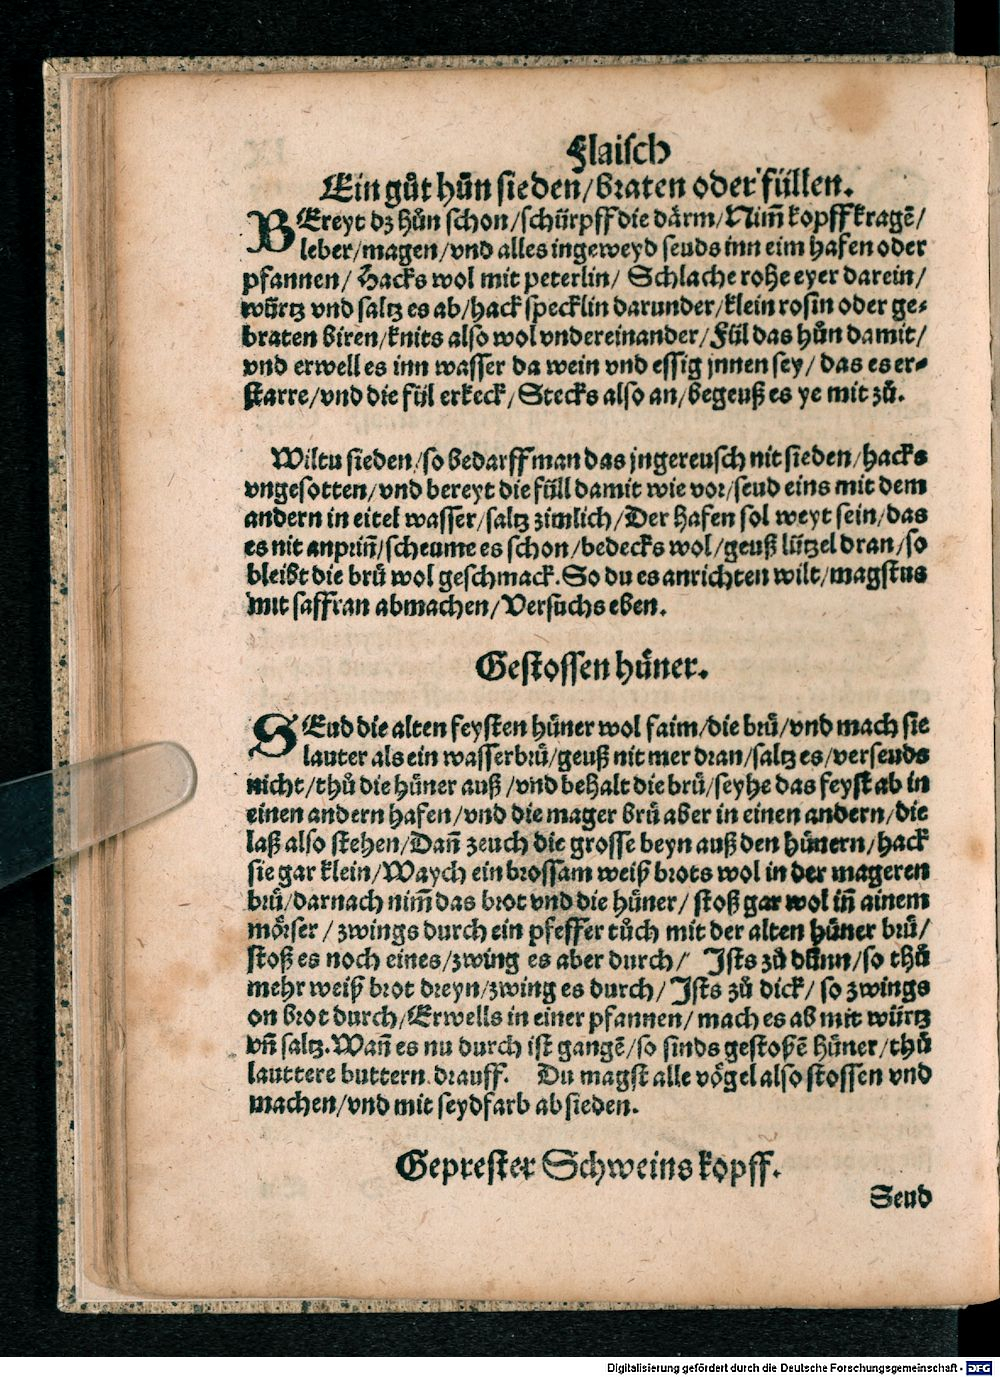 Flaisch
Ein gůt hůn sieden/braten oder füllen.
BEreyt dz hůn schon/schürpff die därm/Nim̃ kopff kragẽ/
leber/magen/vnd alles ingeweyd seuds inn eim hafen oder
pfannen/ Hacks wol mit peterlin/ Schlache rohe eyer darein/
würtz vnd saltz es ab/hack specklin darunder/klein rosin oder ge⸗
braten biren/knits also wol vndereinander/Fül das hůn damit/
vnd erwell es inn wasser da wein vnd essig jnnen sey/ das es er⸗
starre/vnd die fül erkeck/Stecks also an/begeuß es ye mit zů.
Wiltu sieden/so bedarff man das jngereusch nit sieden/hacks
vngesotten/vnd bereyt die füll damit wie vor/seud eins mit dem
andern in eitel wasser/saltz zimlich/Der hafen sol weyt sein/das
es nit anprin̄/scheume es schon/bedecks wol/geuß lützel dran/so
bleibt die brů wol geschmack. So du es anrichten wilt/magstus
mit saffran abmachen/Versuchs eben.
Gestossen hůner.
SEud die alten feysten hůner wol faim/die brů/vnd mach sie
lauter als ein wasserbrů/geuß nit mer dran/saltz es/verseuds
nicht/thů die hůner auß/vnd behalt die brů/seyhe das feyst ab in
einen andern hafen/vnd die mager brů aber in einen andern/die
laß also stehen/Dañ zeuch die grosse beyn auß den hůnern/hack
sie gar klein/Waych ein brossam weiß brots wol in der mageren
brů/darnach nim̃ das brot vnd die hůner/ stoß gar wol in̄ ainem
mörser/ zwings durch ein pfeffer tůch mit der alten hůner brů/
stoß es noch eines/zwing es aber durch/ Ists zů dünn/so thů
mehr weiß brot dreyn/zwing es durch/ Ists zů dick/ so zwings
on brot durch/Erwells in einer pfannen/ mach es ab mit würtz
vñ saltz. Wañ es nu durch ist gangẽ/so sinds gestoßẽ hůner/thů
lauttere buttern drauff. Du magst alle vögel also stossen vnd
machen/vnd mit seydfarb ab sieden.
Geprester Schweins kopff.
Seud
Digitalisierung gefördert durch die Deutsche Forschungsgemeinschaft - DFG